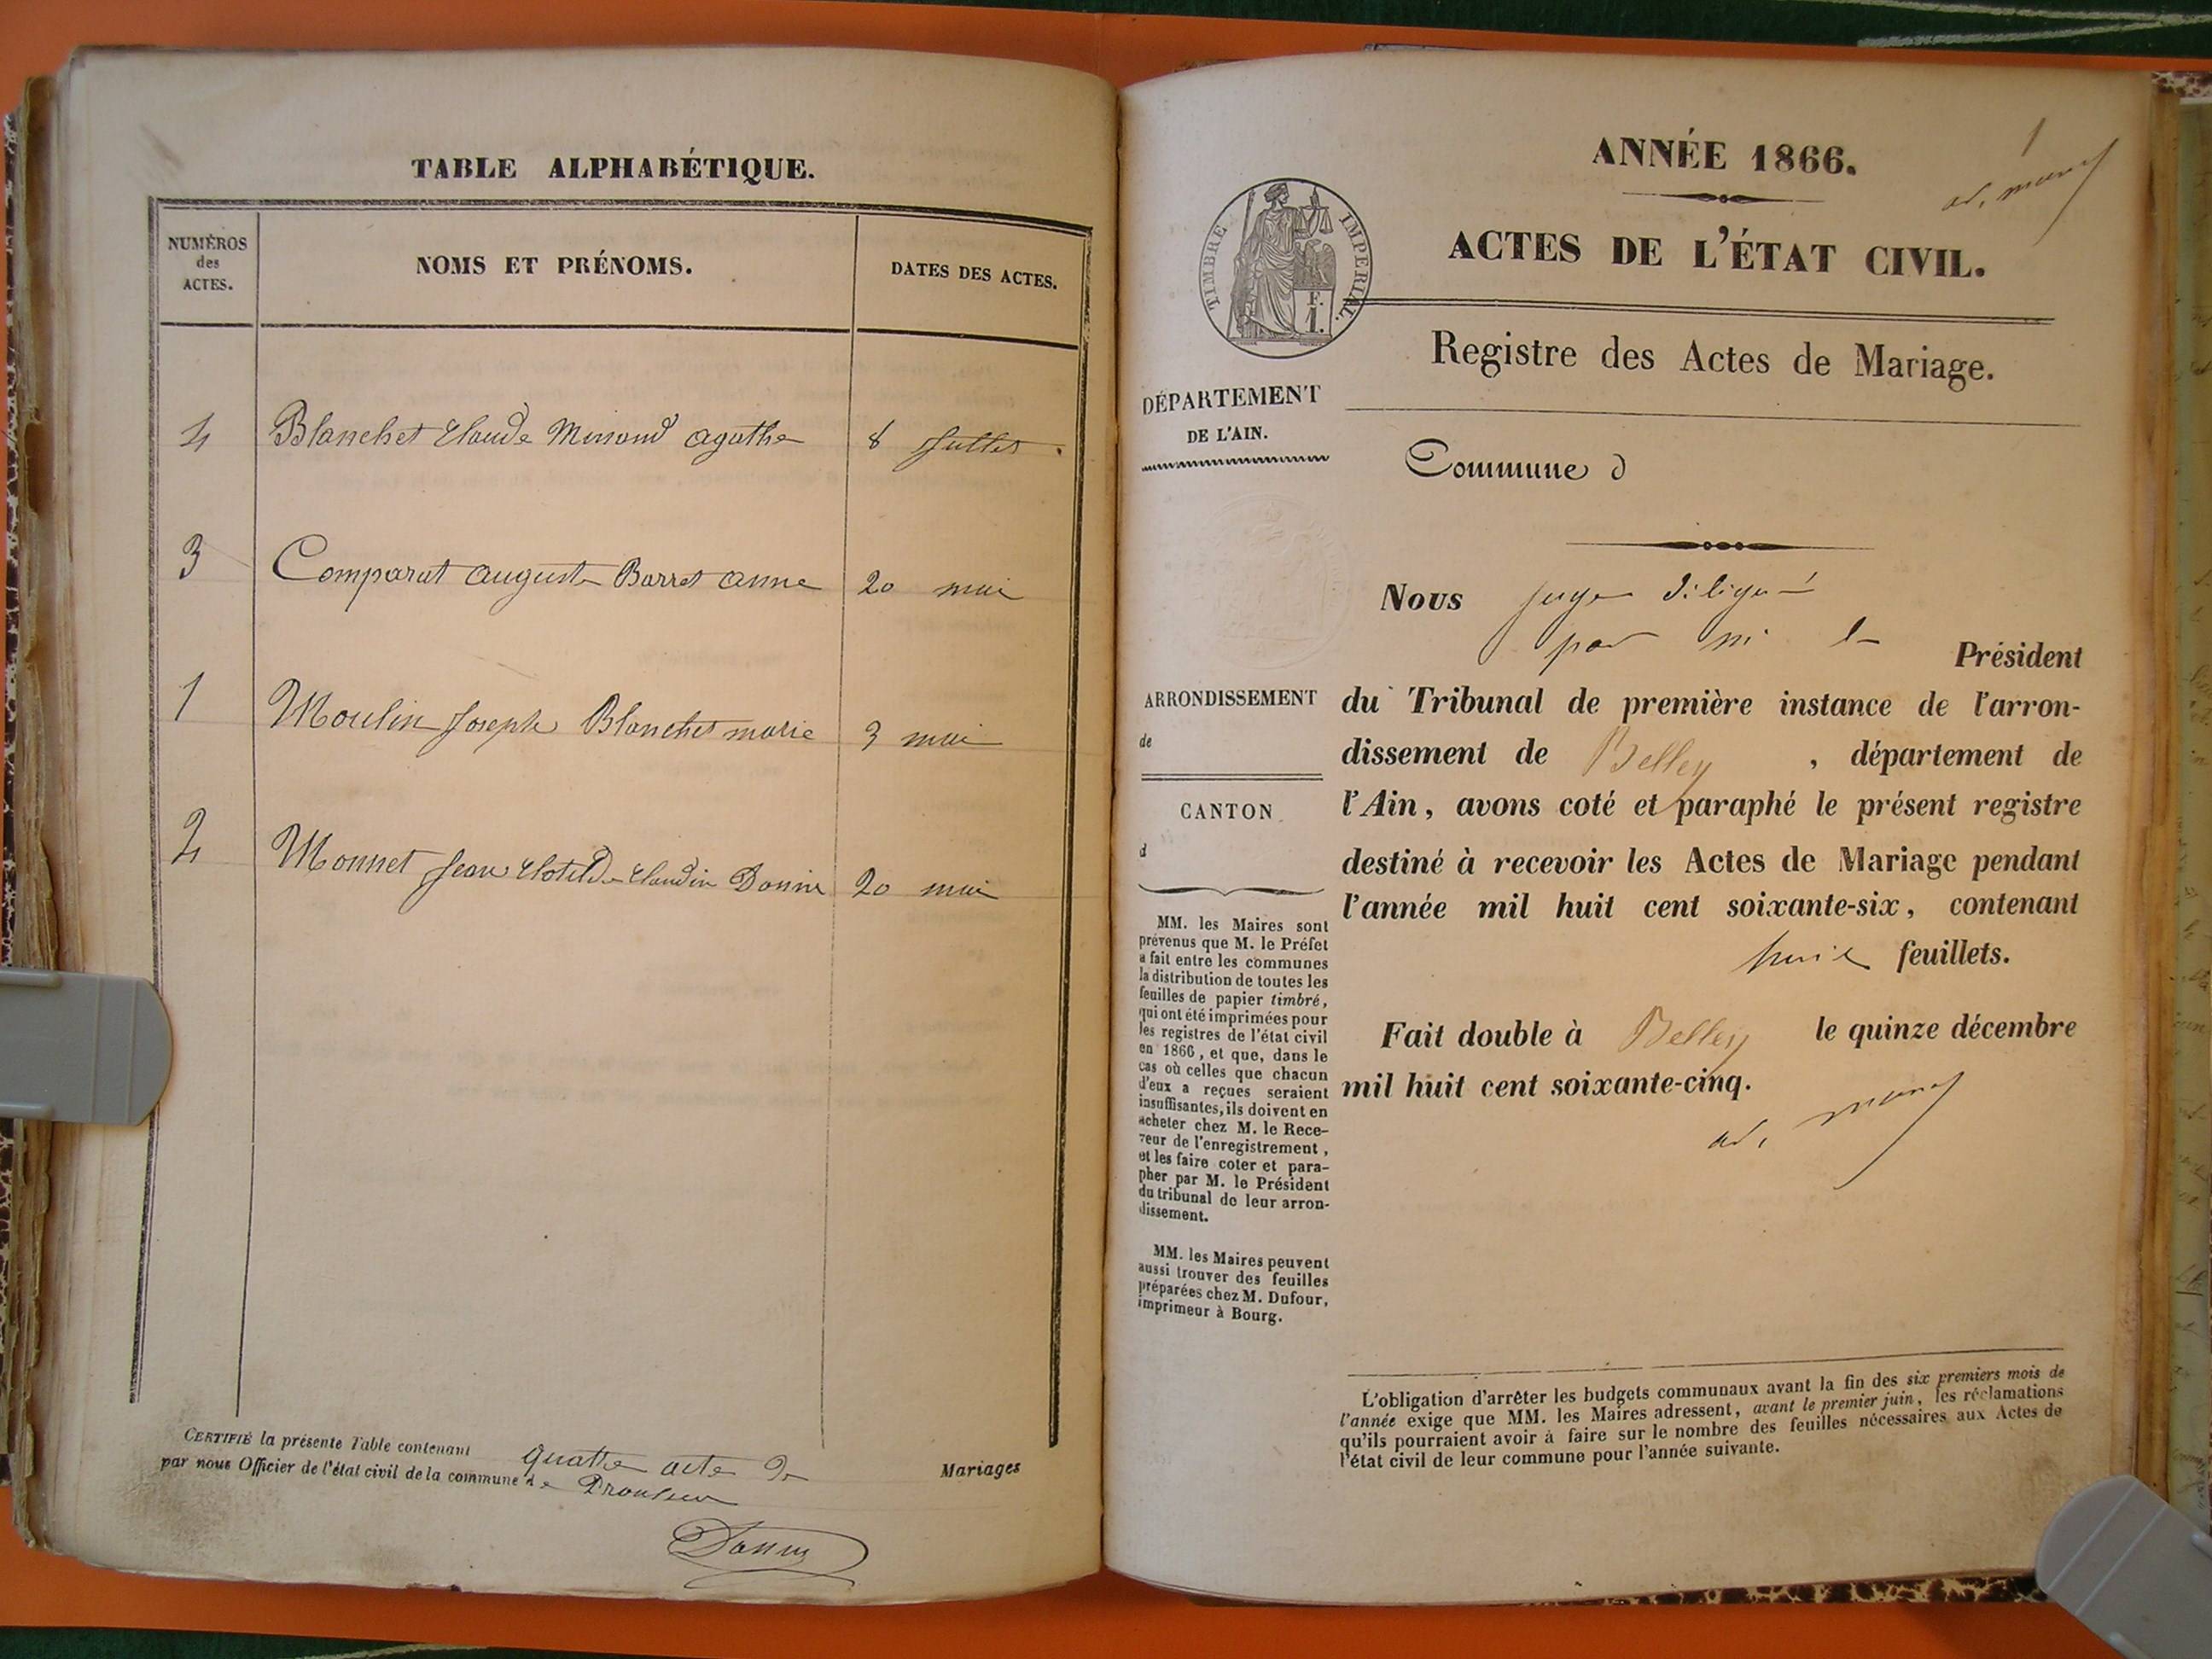 TABLE ALPHABÉTIQUE.
NUMÉROS
des
ACTES.
NOMS ET PRÉNOMS.
DATES DES ACTES.
4 Blanchet Claude Minond agathe 8 Juillet
3 Comparat auguste Barret anne 20 mai
1 Moulin Joseph Blanchet marie 3 mai
2 Monnet Jean Clotilde Claudine Donin 20 mai
CERTIFIÉ la présente Table contenant quatre acte de Mariages
par nous Officier de l'état civil de la commune de
ANNÉE 1866.
1
ACTES DE L'ÉTAT CIVIL.
TIMBRE IMPERIAL.
Registre des Actes de Mariage.
DÉPARTEMENT
DE L'AIN.
Commune d
Nous juge délégué
par M. le Président
ARRONDISSEMENT
de
CANTON
d
du Tribunal de première instance de l'arron-
dissement de Belley , département de
l'Ain, avons coté et paraphé le présent registre
destiné à recevoir les Actes de Mariage pendant
l'année mil huit cent soixante-six, contenant
huit feuillets.
Fait double à Belley le quinze décembre
mil huit cent soixante-cinq.
MM. les Maires sont
prévenus que M. le Préfet
a fait entre les communes
la distribution de toutes les
feuilles de papier timbré,
qui ont été imprimées pour
les registres de l'état civil
en 1866, et que, dans le
cas où celles que chacun
d'eux a reçues seraient
insuffisantes, ils doivent en
acheter chez M. le Rece-
veur de l'enregistrement,
et les faire coter et para-
pher par M. le Président
du tribunal de leur arron-
dissement.
MM. les Maires peuvent
aussi trouver des feuilles
préparées chez M. Dufour,
imprimeur à Bourg.
L'obligation d'arrêter les budgets communaux avant la fin des six premiers mois de
l'année exige que MM. les Maires adressent, avant le premier juin, les réclamations
qu'ils pourraient avoir à faire sur le nombre des feuilles nécessaires aux Actes de
l'état civil de leur commune pour l'année suivante.